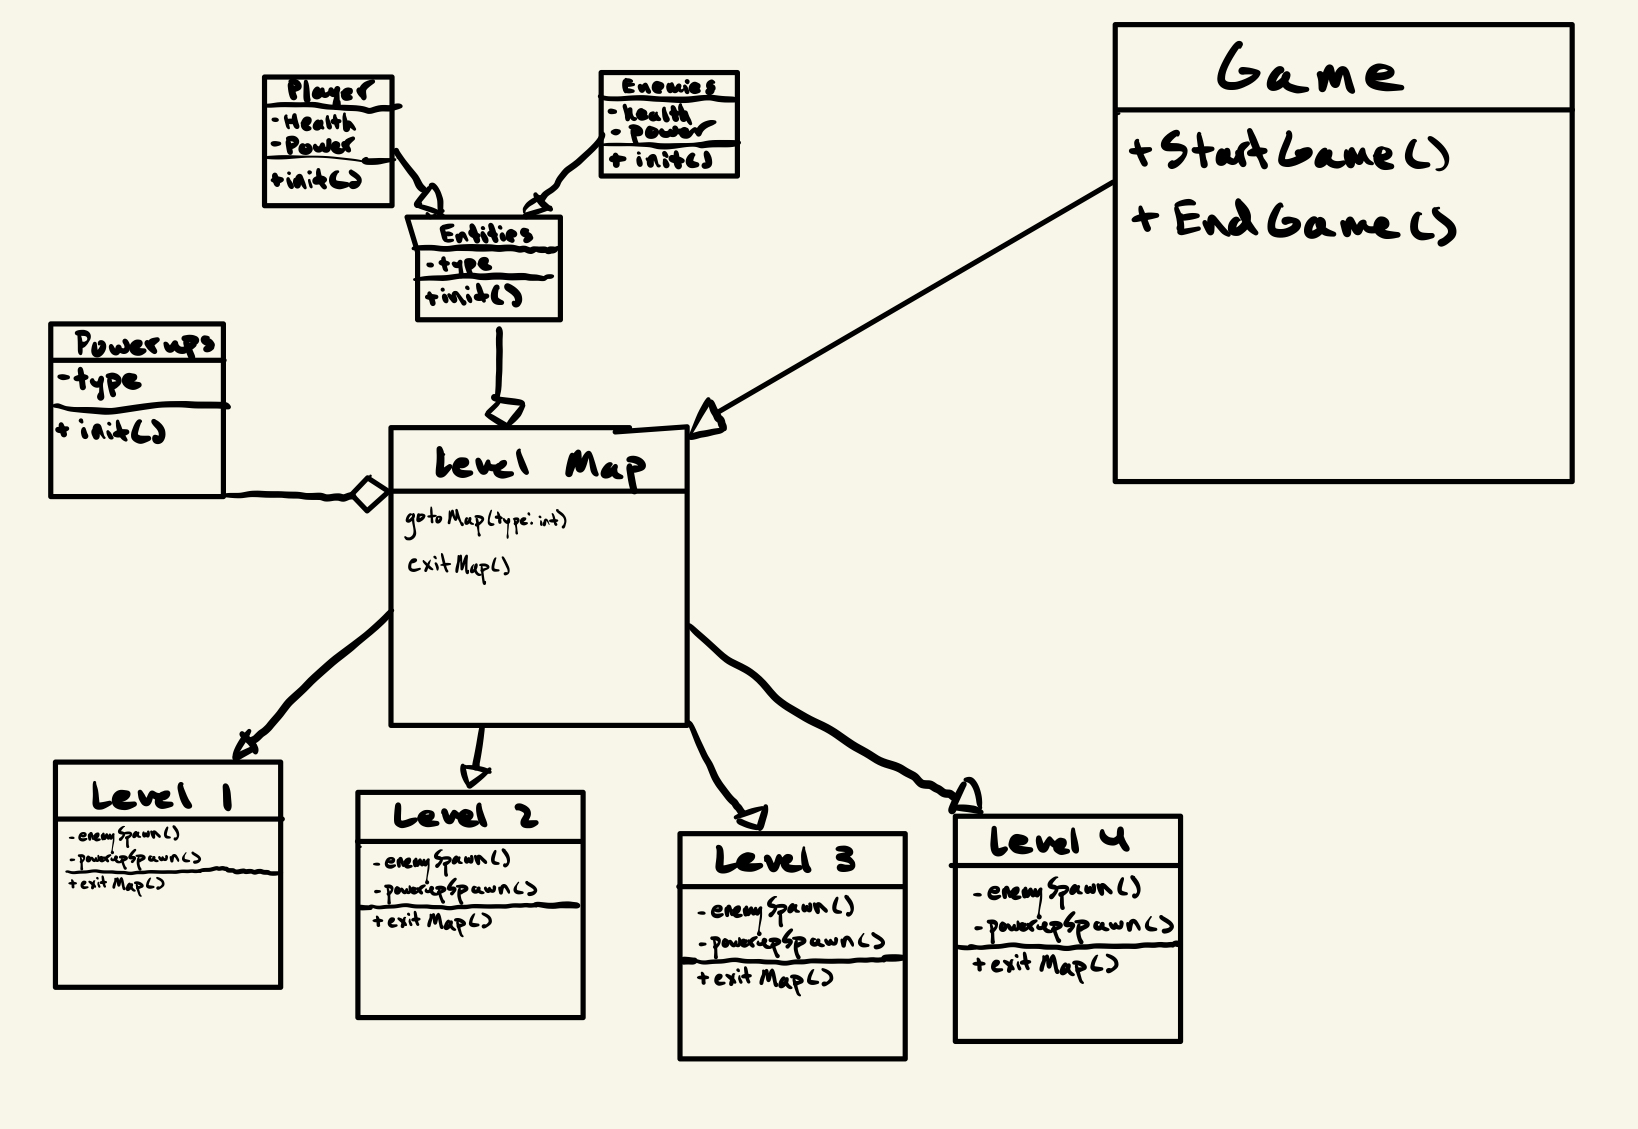 Player
- Health
- Power
+init()
Enemies
- health
- power
+ init()
Game
+StartGame()
+ EndGame()
Entities
- type
+init()
Powerups
- type
+ init()
Level Map
gotoMap(type: int)
exitMap()
Level 1
- enemySpawn()
- powerupSpawn()
+ exit Map()
Level 2
- enemySpawn()
- powerupSpawn()
+ exit Map()
Level 3
- enemySpawn()
- powerupSpawn()
+ exit Map()
Level 4
- enemySpawn()
- powerupSpawn()
+ exit Map()